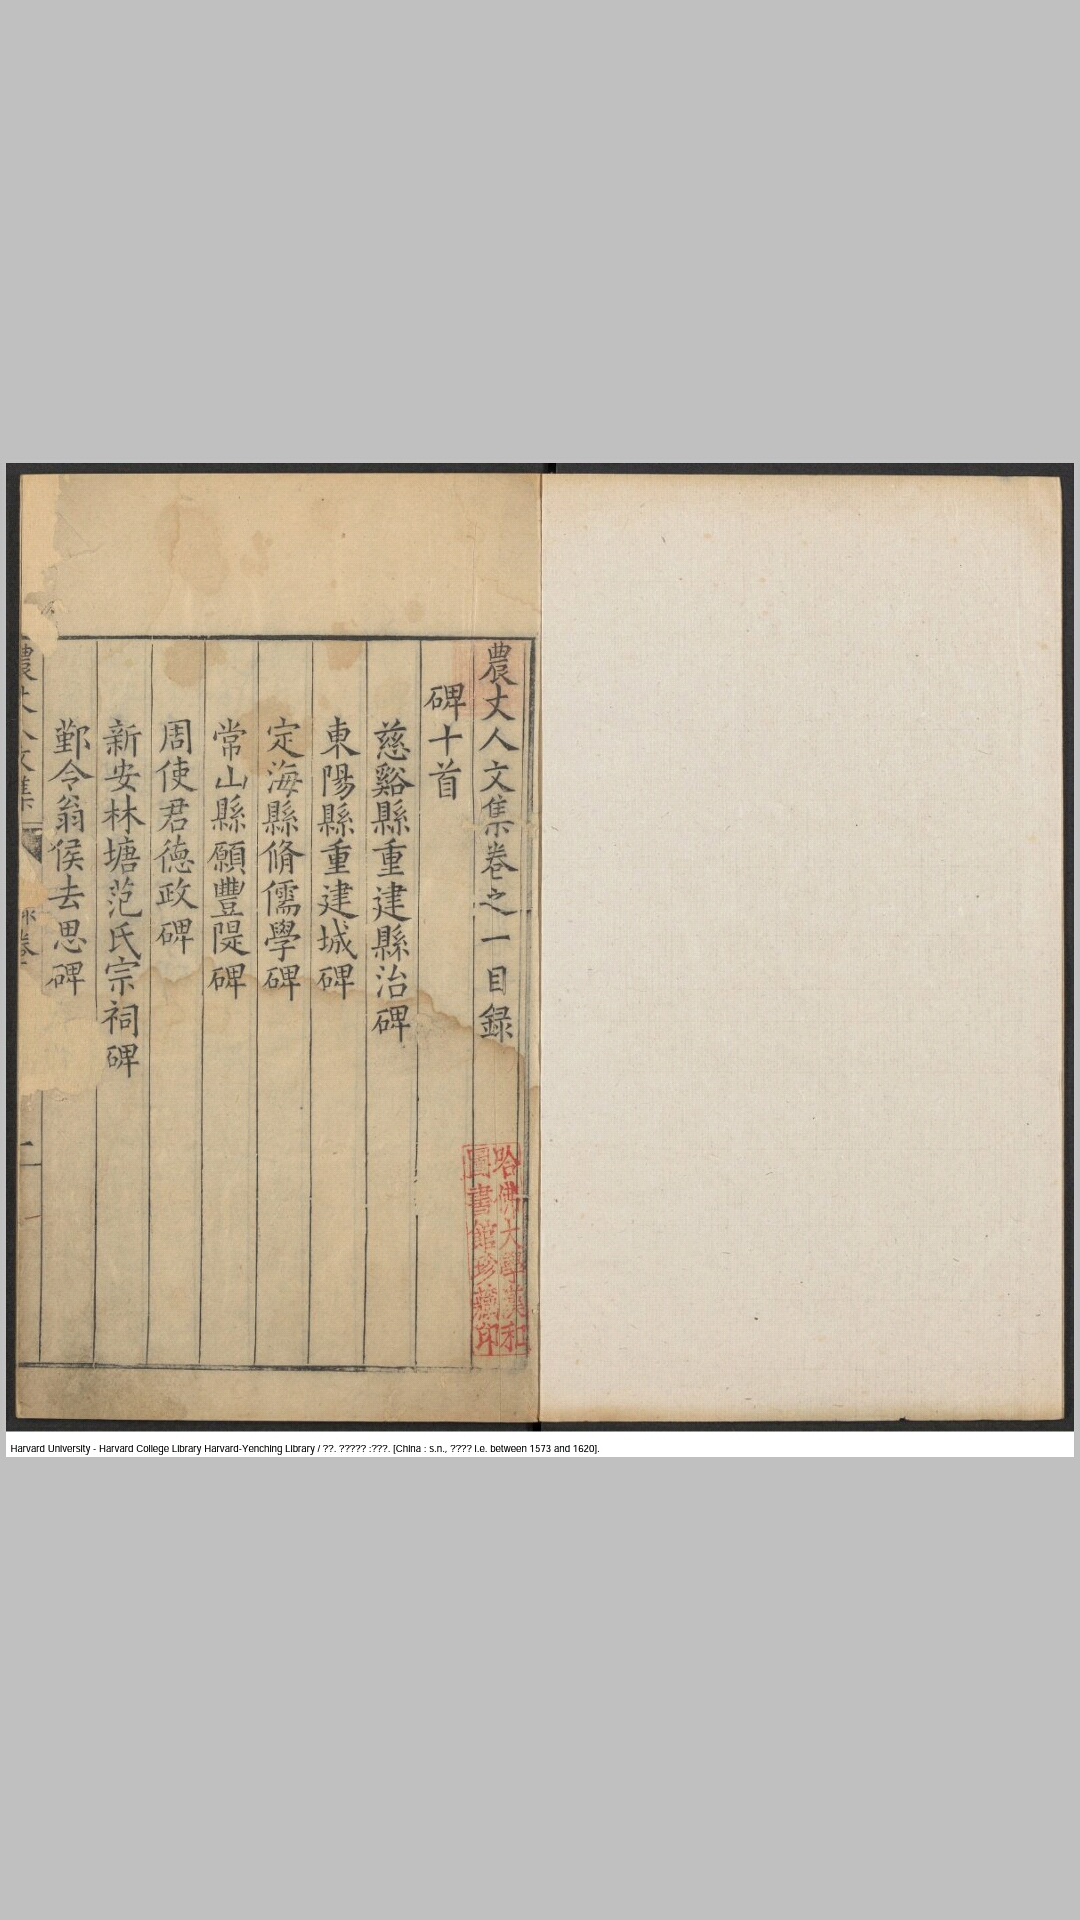 農丈人文集卷之一目録
碑十首
慈谿縣重建縣治碑
東陽縣重建城碑
定海縣脩儒學碑
常山縣願豐隄碑
周使君德政碑
新安林塘范氏宗祠碑
鄞令翁侯去思碑
哈佛大學漢和
圖書館珍藏印
Harvard University - Harvard College Library Harvard-Yenching Library / ??. ????? :???. [China : s.n., ???? i.e. between 1573 and 1620].